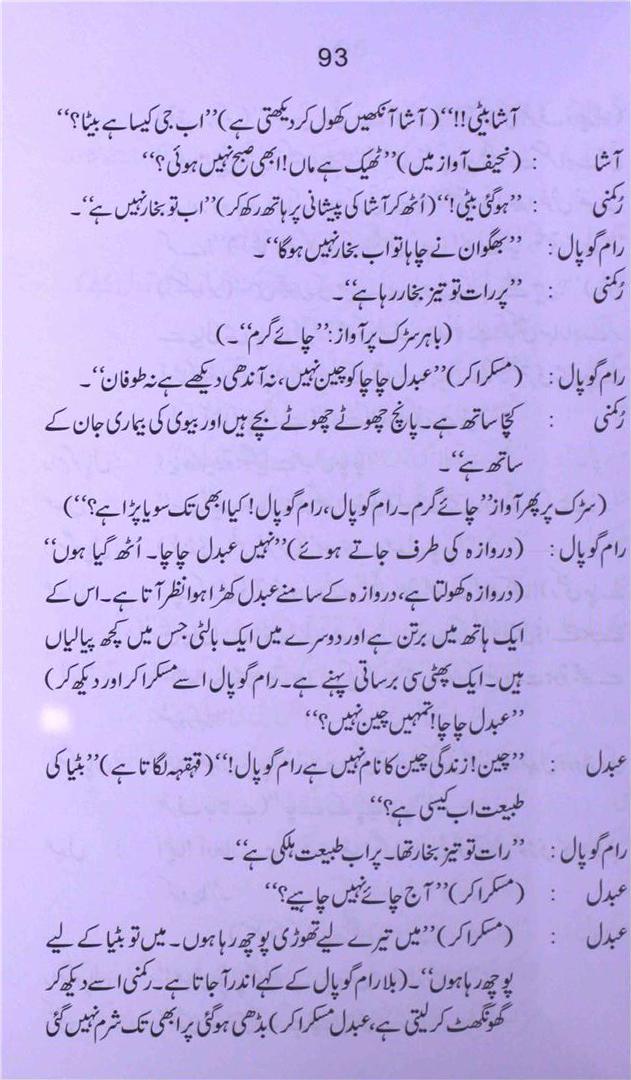 93
آشا بیٹی!!‘‘ (آشا آنکھیں کھول کر دیکھتی ہے) ’’اب جی کیسا ہے بیٹا؟‘‘
آشا : (نحیف آواز میں) ’’ٹھیک ہے ماں! ابھی صبح نہیں ہوئی؟‘‘
رُکمنی : ’’ہوگئی بیٹی!‘‘ (اُٹھ کر آشا کی پیشانی پر ہاتھ رکھ کر) ’’اب تو بخار نہیں ہے‘‘۔
رام گوپال : ’’بھگوان نے چاہا تو اب بخار نہیں ہوگا‘‘۔
رُکمنی : ’’پر رات تو تیز بخار رہا ہے‘‘۔
(باہر سڑک پر آواز: ’’چائے گرم‘‘۔)
رام گوپال : (مسکرا کر) ’’عبدل چاچا کو چین نہیں، نہ آندھی دیکھے ہے نہ طوفان‘‘۔
رُکمنی : کچّا ساتھ ہے۔ پانچ چھوٹے چھوٹے بچے ہیں اور بیوی کی بیماری جان کے
ساتھ ہے‘‘۔
(سڑک پر پھر آواز ’’چائے گرم۔ رام گوپال، رام گوپال! کیا ابھی تک سویا پڑا ہے؟‘‘)
رام گوپال : (دروازہ کی طرف جاتے ہوئے) ’’نہیں عبدل چاچا۔ اُٹھ گیا ہوں‘‘
(دروازہ کھولتا ہے، دروازہ کے سامنے عبدل کھڑا ہوا نظر آتا ہے۔ اس کے
ایک ہاتھ میں برتن ہے اور دوسرے میں ایک بالٹی جس میں کچھ پیالیاں
ہیں۔ ایک پھٹی سی برساتی پہنے ہے۔ رام گوپال اسے مسکرا کر اور دیکھ کر)
’’عبدل چاچا! تمہیں چین نہیں؟‘‘
عبدل : ’’چین! زندگی چین کا نام نہیں ہے رام گوپال!‘‘ (قہقہہ لگاتا ہے) ’’بٹیا کی
طبیعت اب کیسی ہے؟‘‘
رام گوپال : ’’رات تو تیز بخار تھا۔ پر اب طبیعت ہلکی ہے‘‘۔
عبدل : (مسکرا کر) ’’آج چائے نہیں چاہیے؟‘‘
عبدل : (مسکرا کر) ’’میں تیرے لیے تھوڑی پوچھ رہا ہوں۔ میں تو بٹیا کے لیے
پوچھ رہا ہوں‘‘۔ (بلا رام گوپال کے کہے اندر آجاتا ہے۔ رکمنی اسے دیکھ کر
گھونگھٹ کر لیتی ہے، عبدل مسکرا کر) بڈھی ہوگئی پر ابھی تک شرم نہیں گئی